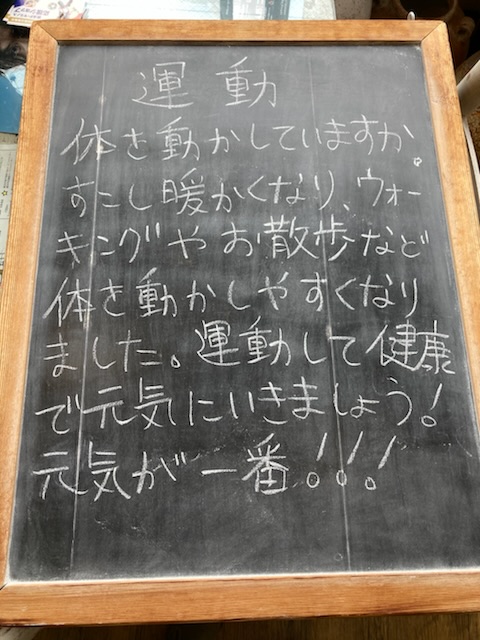 運動
体を動かしていますか。
すこし暖かくなり、ウォー
キングやお散歩など
体を動かしやすくなり
ました。運動して健康
で元気にいきましょう!
元気が一番!!!